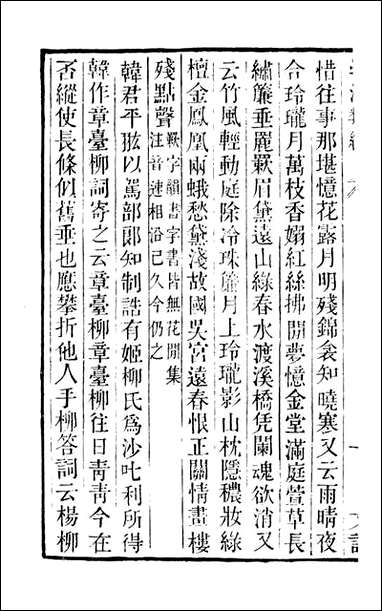 惜往事那堪憶花露月明殘錦衾知曉寒又云雨晴夜
合玲瓏月萬枝香嫋紅絲拂閒夢憶金堂滿庭萱草長
繡簾垂麗歎眉黛遠山綠春水渡溪橋凭闌魂欲消又
云竹風輕動庭除冷珠簾月上玲瓏影山枕隱穠妝綠
檀金鳳凰兩蛾愁黛淺故國吳宮遠春恨正關情畫樓
殘點聲
歎字韻書字書皆無花間集
注音速相沿已久今仍之
韓君平翃以駕部郎知制誥有姬柳氏爲沙吒利所得
韓作章臺柳詞寄之云章臺柳章臺柳往日靑靑今在
否縱使長條似舊垂也應攀折他人手柳答詞云楊柳